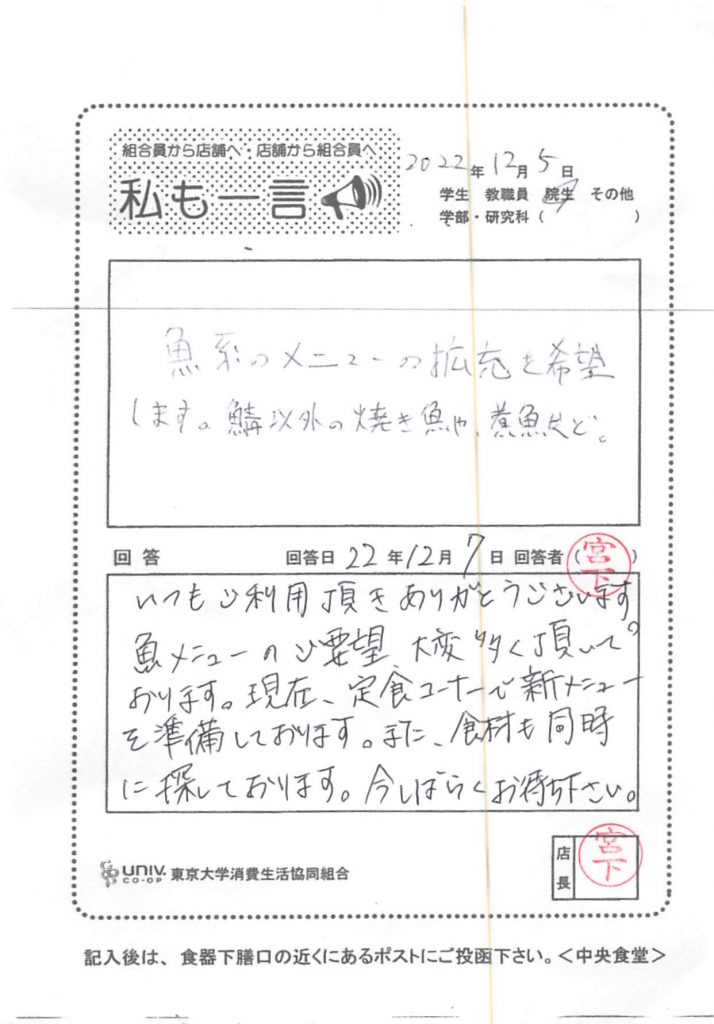 組合員から店舗へ・店舗から組合員へ
私も一言
2022年12月5日
学生 教職員 院生 その他
学部・研究科( )
魚系のメニューの拡充を希望
します。鱗以外の焼き魚や、煮魚など。
回答 回答日 22年12月7日 回答者(宮下)
いつもご利用頂きありがとうございます。
魚メニューのご要望、大変多く頂いて
おります。現在、定食コーナーで新メニュー
を準備しております。また、食材も同時
に探しております。今しばらくお待ち下さい。
UNIV.
CO-OP 東京大学消費生活協同組合
店長 宮下
記入後は、食器下膳口の近くにあるポストにご投函下さい。<中央食堂>